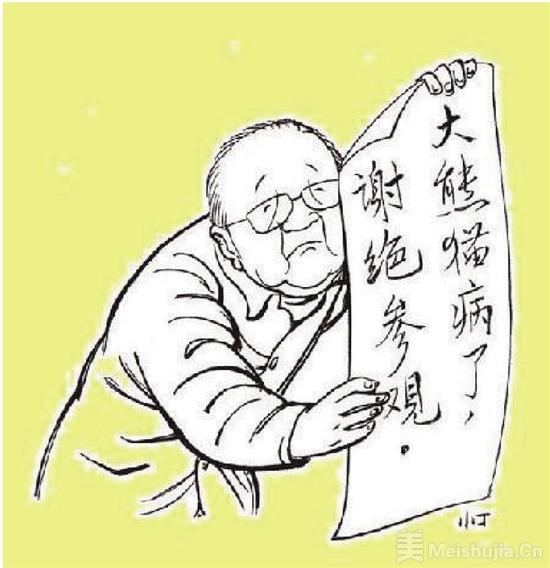 大熊猫病了，
谢绝参观。
小丁
美 Meishujia.Cn